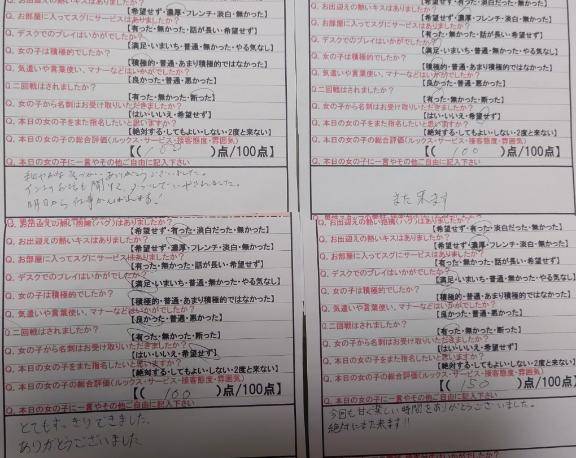 Q. お出迎えの熱いキスはありましたか?
【希望せず・濃厚・フレンチ・淡白・無かった】
Q. お部屋に入ってスグにサービスはありましたか?
【有った・無かった・話が長い・希望せず】
Q. デスクでのプレイはいかがでしたか?
【満足・いまいち・普通・無かった・やる気なし】
Q. 女の子は積極的でしたか?
【積極的・普通・あまり積極的ではなかった】
Q. 気遣いや言葉使い、マナーなどはいかがでしたか?
【良かった・普通・悪かった】
Q.二回戦はされましたか?
【有った・無かった・断った】
Q. 女の子から名刺はお受け取りいただきましたか?
【はい・いいえ・希望せず】
Q. 本日の女の子をまた指名したいと思いますか?
【絶対する・してもよい・しない・2度と来ない】
Q. 本日の女の子の総合評価(ルックス・サービス・接客態度・雰囲気)
【( 100 )点/100点】
Q. 本日の女の子に一言やその他ご自由に記入下さい
ありがとうございました。
明日から仕事がんばれます!
Q. お出迎えの熱いキスはありましたか?
【希望せず・濃厚・フレンチ・淡白・無かった】
Q. お部屋に入ってスグにサービスはありましたか?
【有った・無かった・話が長い・希望せず】
Q. デスクでのプレイはいかがでしたか?
【満足・いまいち・普通・無かった・やる気なし】
Q. 女の子は積極的でしたか?
【積極的・普通・あまり積極的ではなかった】
Q. 気遣いや言葉使い、マナーなどはいかがでしたか?
【良かった・普通・悪かった】
Q.二回戦はされましたか?
【有った・無かった・断った】
Q. 女の子から名刺はお受け取りいただきましたか?
【はい・いいえ・希望せず】
Q. 本日の女の子をまた指名したいと思いますか?
【絶対する・してもよい・しない・2度と来ない】
Q. 本日の女の子の総合評価(ルックス・サービス・接客態度・雰囲気)
【( 100 )点/100点】
Q. 本日の女の子に一言やその他ご自由に記入下さい
また来ます
Q. お出迎えの熱い抱擁(ハグ)はありましたか?
【希望せず・有った・淡白だった・無かった】
Q. お出迎えの熱いキスはありましたか?
【希望せず・濃厚・フレンチ・淡白・無かった】
Q. お部屋に入ってスグにサービスはありましたか?
【有った・無かった・話が長い・希望せず】
Q. デスクでのプレイはいかがでしたか?
【満足・いまいち・普通・無かった・やる気なし】
Q. 女の子は積極的でしたか?
【積極的・普通・あまり積極的ではなかった】
Q. 気遣いや言葉使い、マナーなどはいかがでしたか?
【良かった・普通・悪かった】
Q.二回戦はされましたか?
【有った・無かった・断った】
Q. 女の子から名刺はお受け取りいただきましたか?
【はい・いいえ・希望せず】
Q. 本日の女の子をまた指名したいと思いますか?
【絶対する・してもよい・しない・2度と来ない】
Q. 本日の女の子の総合評価(ルックス・サービス・接客態度・雰囲気)
【( 100 )点/100点】
Q. 本日の女の子に一言やその他ご自由に記入下さい
とてもすっきりできました
ありがとうございました
Q. お出迎えの熱い抱擁(ハグ)はありましたか?
【希望せず・有った・淡白だった・無かった】
Q. お出迎えの熱いキスはありましたか?
【希望せず・濃厚・フレンチ・淡白・無かった】
Q. お部屋に入ってスグにサービスはありましたか?
【有った・無かった・話が長い・希望せず】
Q. デスクでのプレイはいかがでしたか?
【満足・いまいち・普通・無かった・やる気なし】
Q. 女の子は積極的でしたか?
【積極的・普通・あまり積極的ではなかった】
Q. 気遣いや言葉使い、マナーなどはいかがでしたか?
【良かった・普通・悪かった】
Q.二回戦はされましたか?
【有った・無かった・断った】
Q. 女の子から名刺はお受け取りいただきましたか?
【はい・いいえ・希望せず】
Q. 本日の女の子をまた指名したいと思いますか?
【絶対する・してもよい・しない・2度と来ない】
Q. 本日の女の子の総合評価(ルックス・サービス・接客態度・雰囲気)
【( 150 )点/100点】
Q. 本日の女の子に一言やその他ご自由に記入下さい
今回も甘く楽しい時間をありがとうございました。
絶対にまた来ます!!